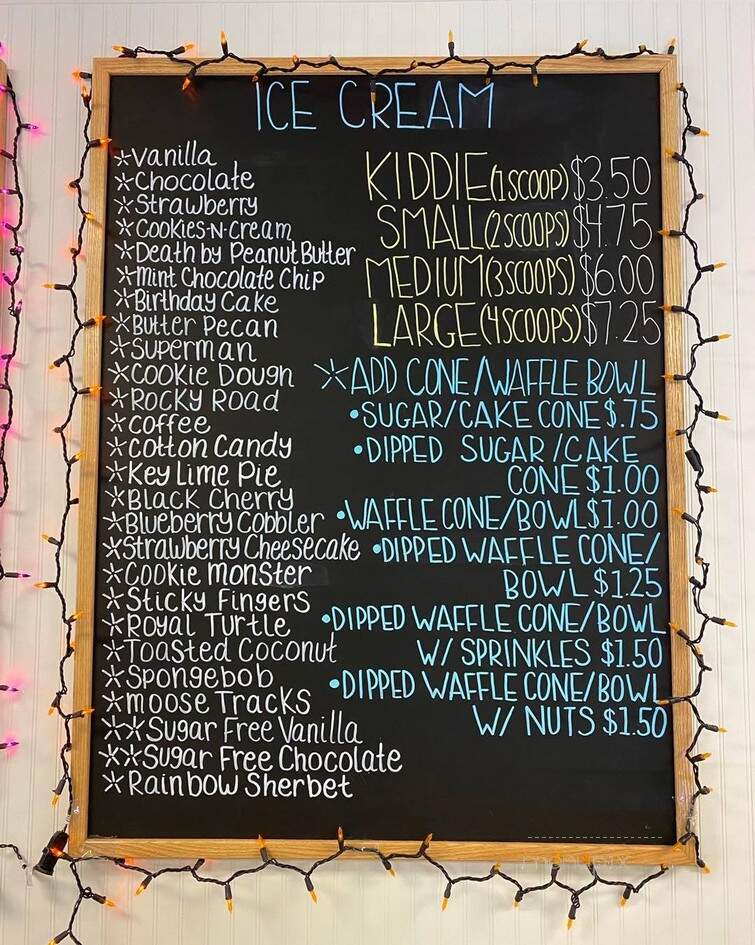 ICE CREAM
*Vanilla
*Chocolate
*Strawberry
*Cookies-N-Cream
*Death by Peanut Butter
*Mint Chocolate Chip
*Birthday Cake
*Butter Pecan
*Superman
*Cookie Dough
*Rocky Road
*Coffee
*Cotton Candy
*Key Lime Pie
*Black Cherry
*Blueberry Cobbler
*Strawberry Cheesecake
*Cookie Monster
*Sticky Fingers
*Royal Turtle
*Toasted Coconut
*Spongebob
*Moose Tracks
**Sugar Free Vanilla
**Sugar Free Chocolate
*Rainbow Sherbet
KIDDIE (1 SCOOP) $3.50
SMALL (2 SCOOPS) $4.75
MEDIUM (3 SCOOPS) $6.00
LARGE (4 SCOOPS) $7.25
*ADD CONE/WAFFLE BOWL
•SUGAR/CAKE CONE $.75
•DIPPED SUGAR/CAKE
CONE $1.00
•WAFFLE CONE/BOWL $1.00
•DIPPED WAFFLE CONE/
BOWL $1.25
•DIPPED WAFFLE CONE/BOWL
W/ SPRINKLES $1.50
•DIPPED WAFFLE CONE/BOWL
W/ NUTS $1.50